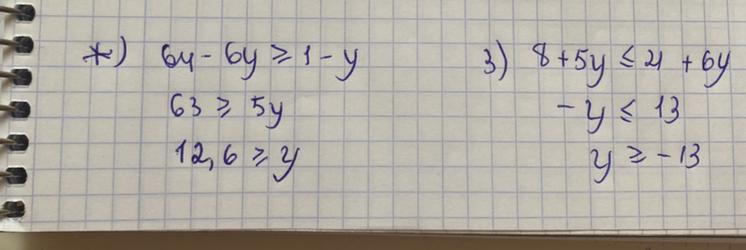 ж) 64 - 6y ≥ 1 - y
63 ≥ 5y
12,6 ≥ y
з) 8 + 5y ≤ 21 + 6y
- y ≤ 13
y ≥ - 13